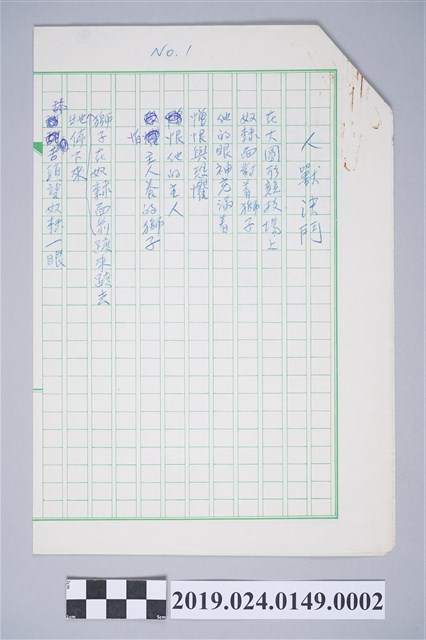 No. 1
人獸決鬥
在大圓形競技場上
奴隸面對着獅子
他的眼神充滿着
憎恨與恐懼
恨他的主人
怕主人養的獅子
獅子在奴隸面前踱來踱去
牠停下來
舉首頭望奴隸一眼
2019.024.0149.0002